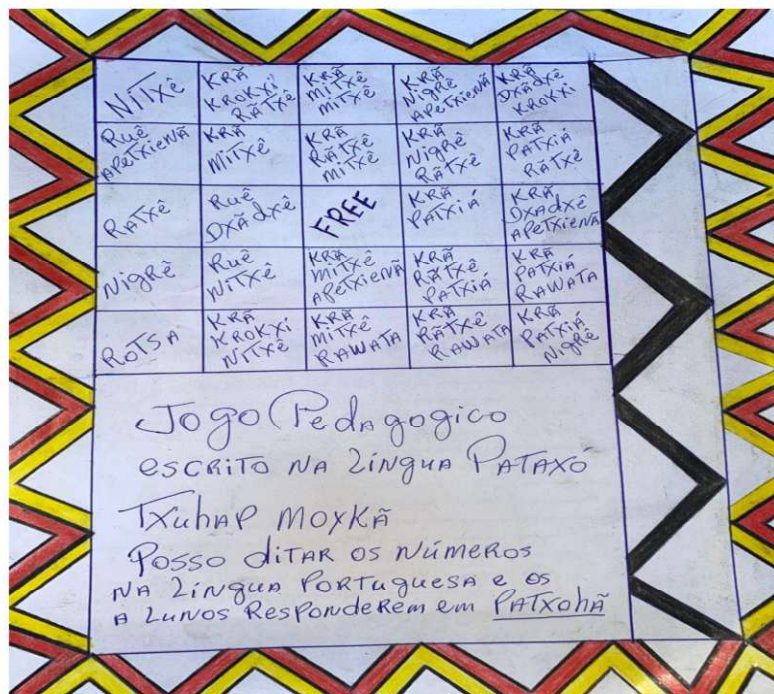 NiTxê
KRÃ
KROKXí
RÃTXê
KRÃ
MiTXê
MiTXê
KRÃ
NigRê
APeTXieNÃ
KRÃ
DXÃdXê
KROKXi
Ruê
APeTXieNÃ
KRÃ
MiTXê
KRÃ
RÃTXê
MiTXê
KRÃ
NigRê
RÃTXê
KRÃ
PATXiÁ
RÃTXê
RATXê
Ruê
DXÃdXê
FREE
KRÃ
PATXiÁ
KRÃ
DXAdXê
APeTXieNÃ
NigRê
Ruê
NiTXê
KRÃ
MiTXê
APeTXieNÃ
KRÃ
RÃTXê
PATXiÁ
KRÃ
PATXiÁ
RAWATA
ROTSA
KRÃ
KROKXí
NiTXê
KRÃ
MiTXê
RAWATA
KRÃ
RÃTXê
RAWATA
KRÃ
PATXiÁ
NigRê
JOgO PedAgogico
escRiTO NA LíNguA PATAXÓ
TXuhAP MOYKÃ
POSSO diTAR OS NúmeROS
NA LíNguA PORTuguesA e os
A LuNOS ResPONdeRem em PATXOhÃ